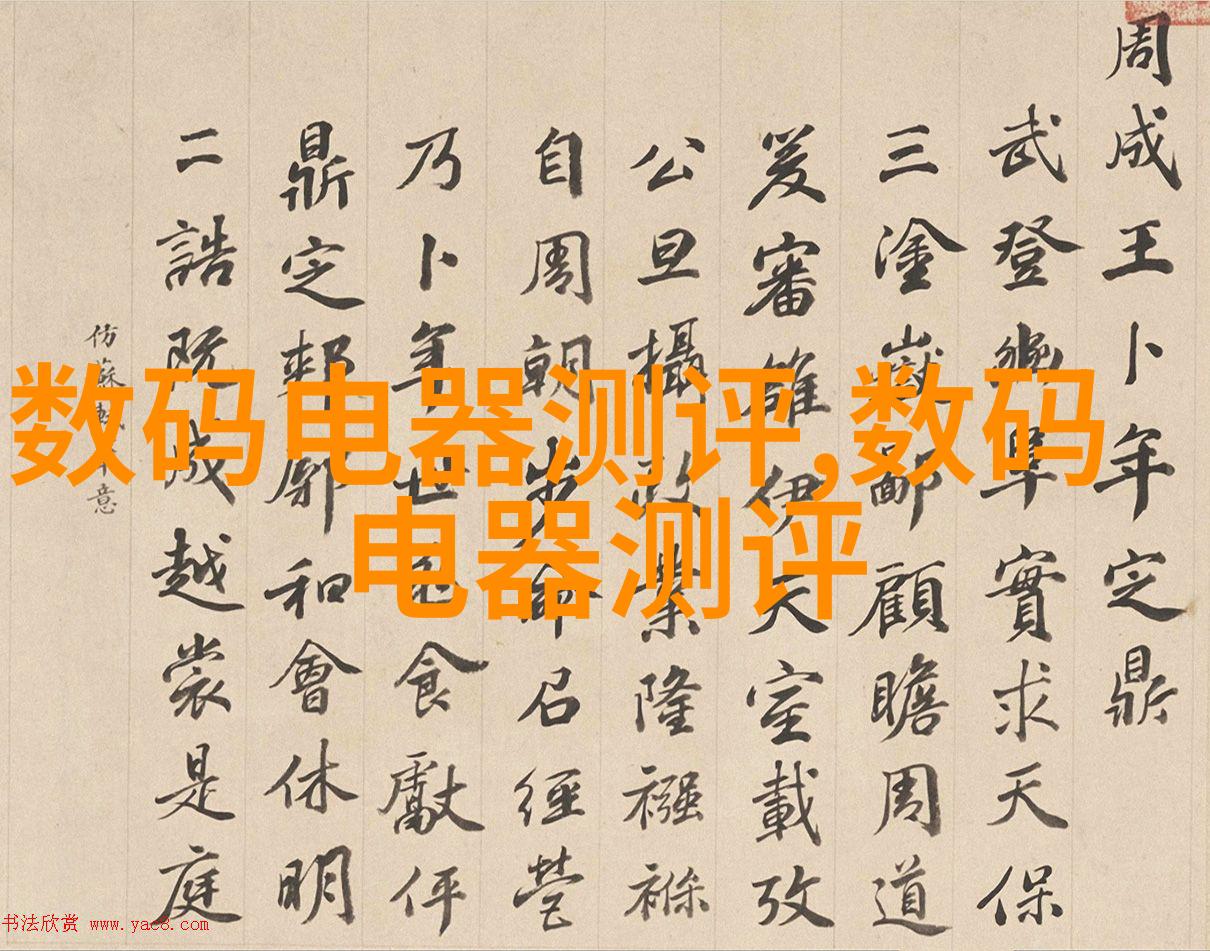 周成王卜年定鼎
武登豳阜實求天保
三塗嶽鄙顧瞻周道
爰審雒伊天室載攷
公旦攝政業隆襁褓
自周朝步命召經營
乃卜年世 食獻伻
鼎定郟鄏和會休明
二誥既成越裳是庭
仿蘇軾 意
数码电器测评,数码
电器测评
书法欣赏 www.yac8.com